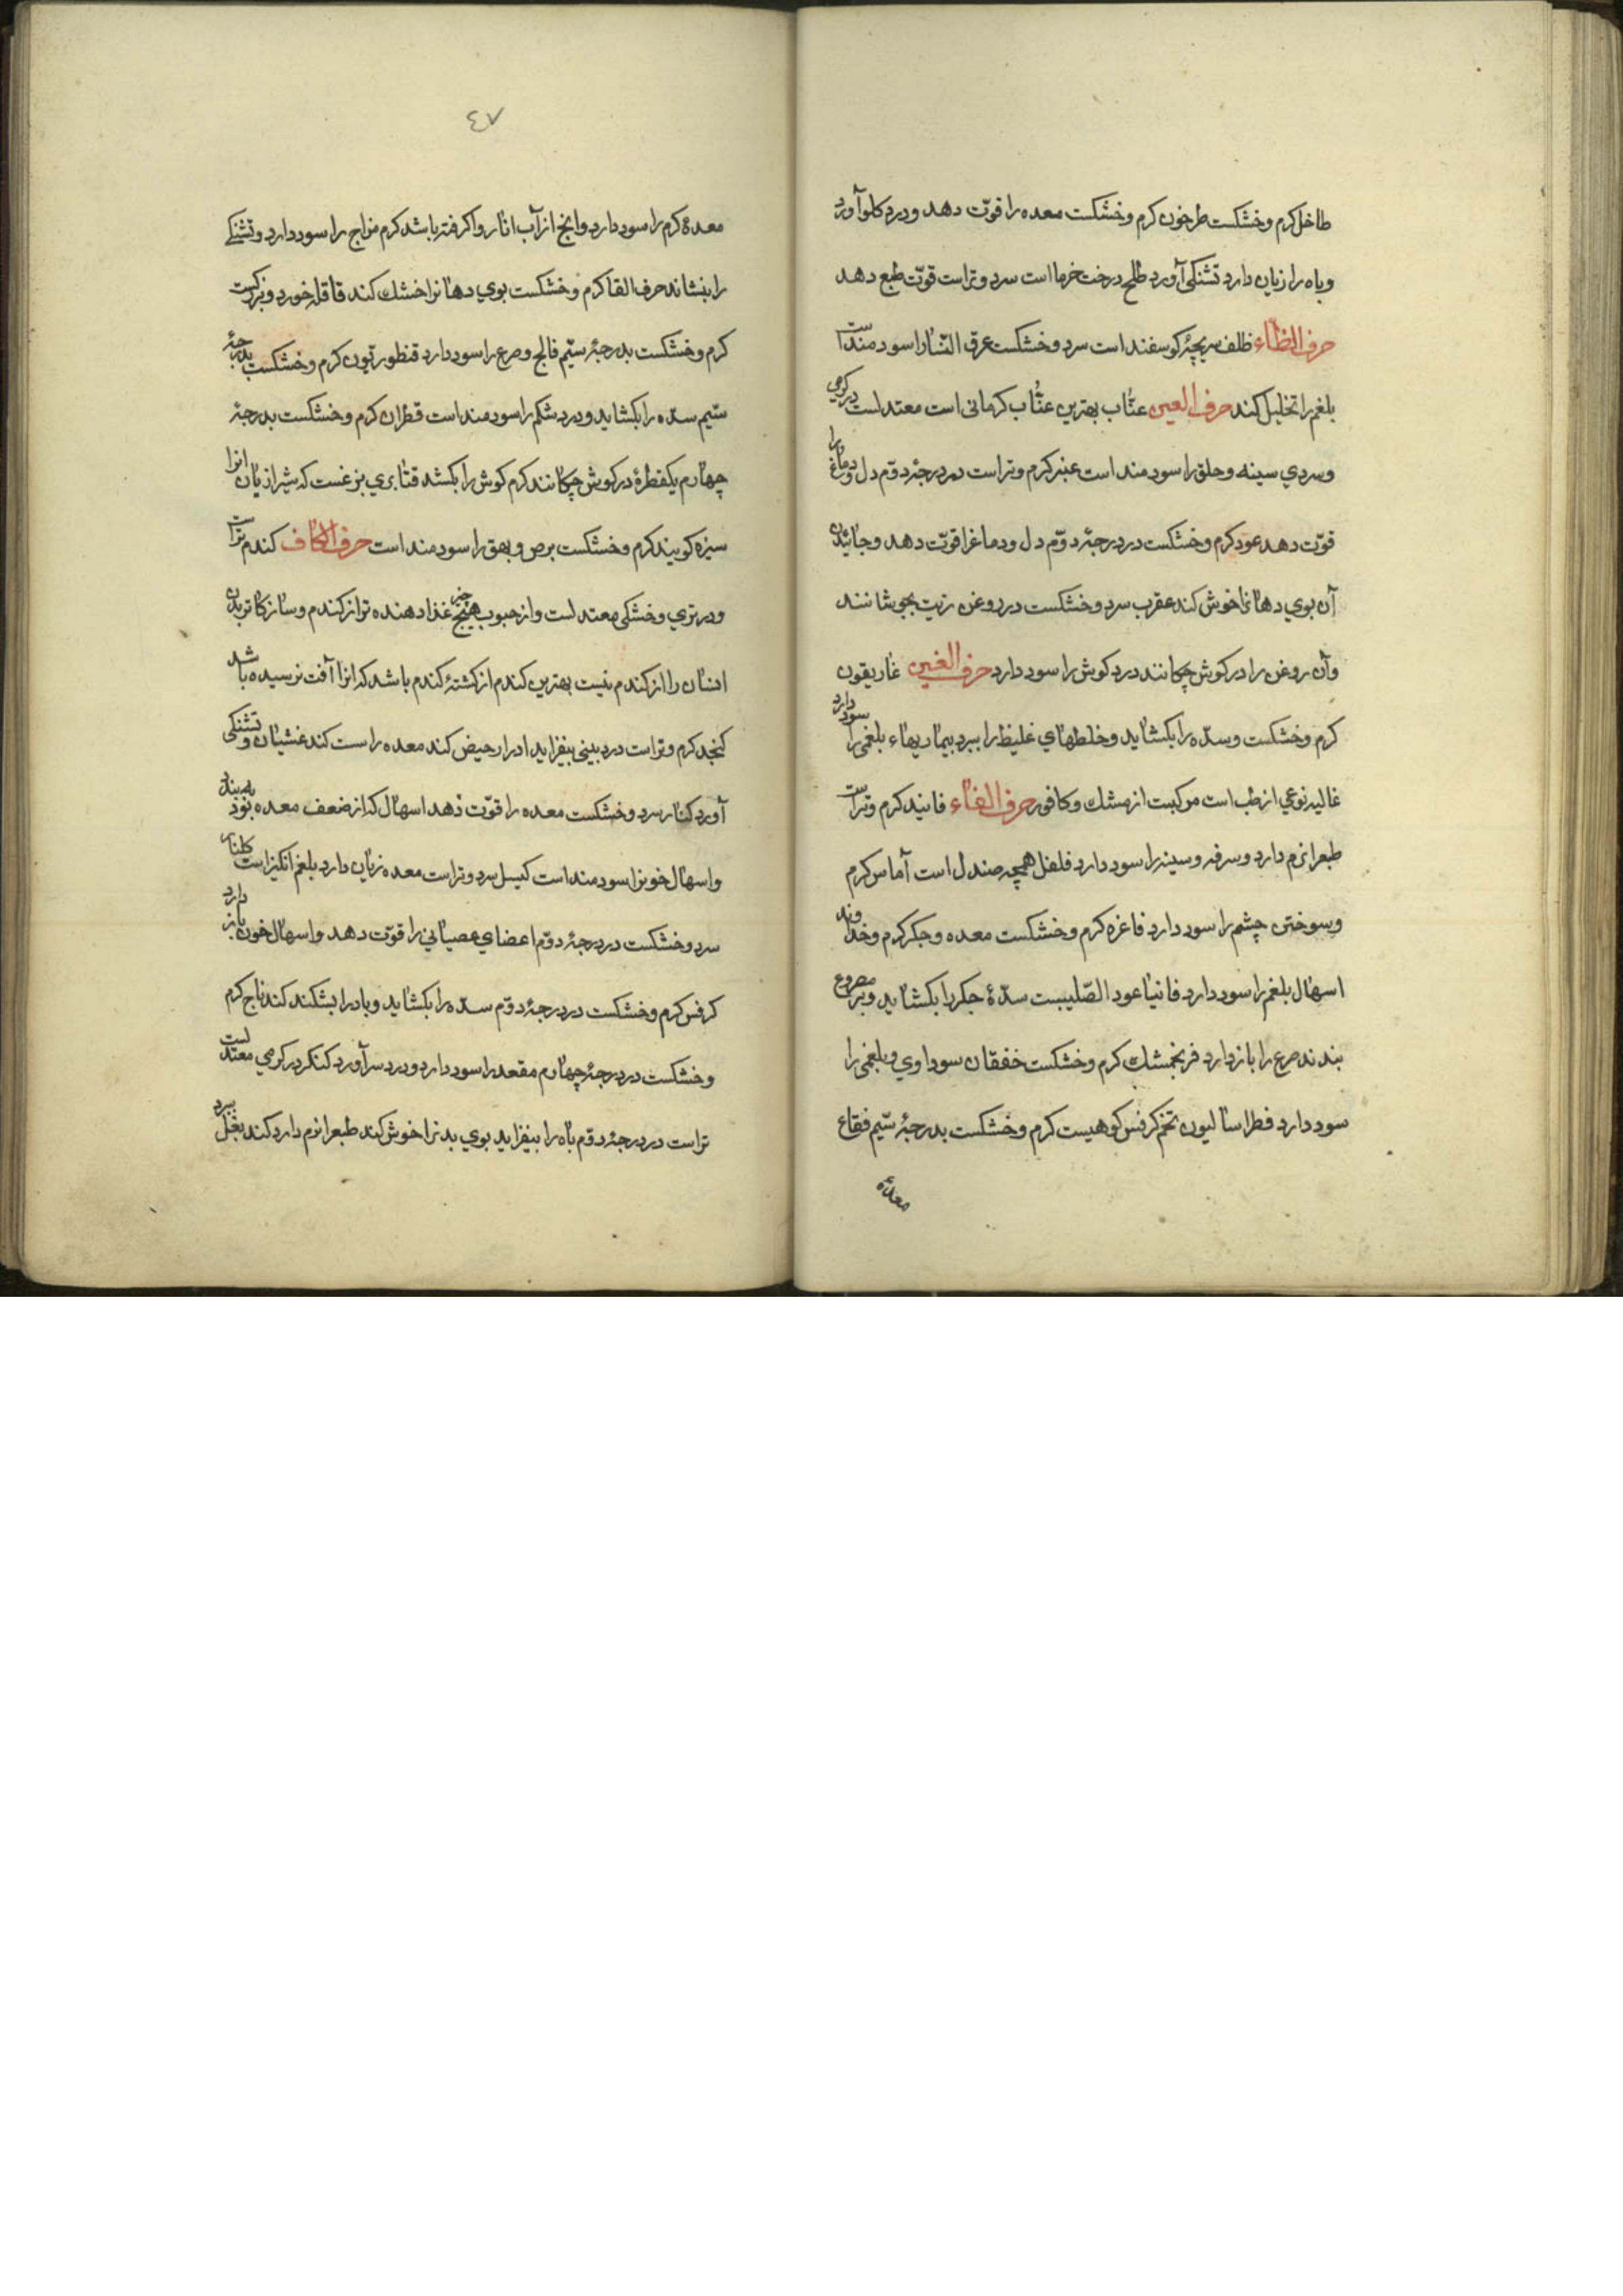 طاخل کرم و خشکست طرخون کرم و خشکست معده را قوّت دهد و درد کلو آورد
و باه را زیان دارد تشنکی آورد طلح درخت خرما است سرد و تراست قوّت طبع دهد
حرف الظاء ظلف بچۀ کوسفند است سرد و خشکست عرق النّسا را سودمند است
بلغم را تحلیل کند حرف العین عنّاب بهترین عنّاب کرمانی است معتدلست در کرمی
و سردی سینه و حلق را سودمند است عنبر کرم و تراست در درجۀ دوّم دل و دماغ را
قوّت دهد عود کرم و خشکست در درجۀ دوّم دل و دماغ را قوّت دهد و جائیدن
آن بوی دهانرا خوش کند عقرب سرد و خشکست در روغن زیت بجوشانند
و آن روغن را در کوش چکانند درد کوش را سود دارد حرف الغین غاریقون
کرم و خشکست و سدّه را بکشاید و خلطهای غلیظ را ببرد بیماریهاء بلغمی را سود دارد
غالیه نوعی از طب است مرکبست از مشک و کافور حرف الفاء فانید کرم و تراست
طبعرا نرم دارد و سرفه و سینه را سود دارد فلفل همچه صندل است آماس کرم
و سوختن چشم را سود دارد فاغره کرم و خشکست معده و جکر کرم و خداوند
اسهال بلغم را سود دارد فانیا عود الصّلیبست سدّۀ جکر را بکشاید و بر مصروع
بندند صرع را باز دارد فرنجمشک کرم و خشکست خفقان سوداوی و بلغمی را
سود دارد فطراسالیون تخم کرفس کوهیست کرم و خشکست بدرجۀ سیّم فقاع
معدۀ
٤٧
معدۀ کرم را سود دارد و انچ از آب انار واکرفته باشد کرم مزاج را سود دارد و تشنکی
را بنشاند حرف القا کرم و خشکست بوی دهانرا خشک کند قاقله خورد و بزرکست
کرم و خشکست بدرجۀ سیّم فالج و صرع را سود دارد قنطوریون کرم و خشکست بدرجۀ
سیّم سدّه را بکشاید و درد شکم را سودمند است قطران کرم و خشکست بدرجۀ
چهارم یکقطرۀ در کوش چکانند کرم کوش را بکشد قثا بری بزغست که شیرازیان انرا
سبزه کویند کرم و خشکست برص و بهق را سودمند است حرف الکاف کندم تراست
و در تری و خشکی معتدلست و از حبوب هیچ چیز غذا دهنده تر از کندم و سازکارتر بدن
انسان را از کندم نیست بهترین کندم از کشتۀ کندم باشد که انرا آفت نرسیده باشد
کنجد کرم و تراست درد بینی بیفزاید ادرار حیض کند معده را سست کند غشیان و تشنکی
آورد کنار سرد و خشکست معده را قوّت دهد اسهال که از ضعف معده بود به بندد
و اسهال خونرا سودمند است کیسل سرد و تراست معده زیان دارد بلغم انکیز است کلنار
سرد و خشکست در درجۀ دوّم اعضای عصبانی را قوّت دهد و اسهال خون باز دارد
کرفس کرم و خشکست در درجۀ دوّم سدّه را بکشاید و باد را بشکند کندناج کرم
و خشکست در درجۀ چهارم مقعد را سود دارد و درد سر آورد کنکر در کرمی معتدلست
تراست در درجۀ دوّم باه را بیفزاید بوی بدنرا خوش کند طبعرا نرم دارد کند بغل ببرد